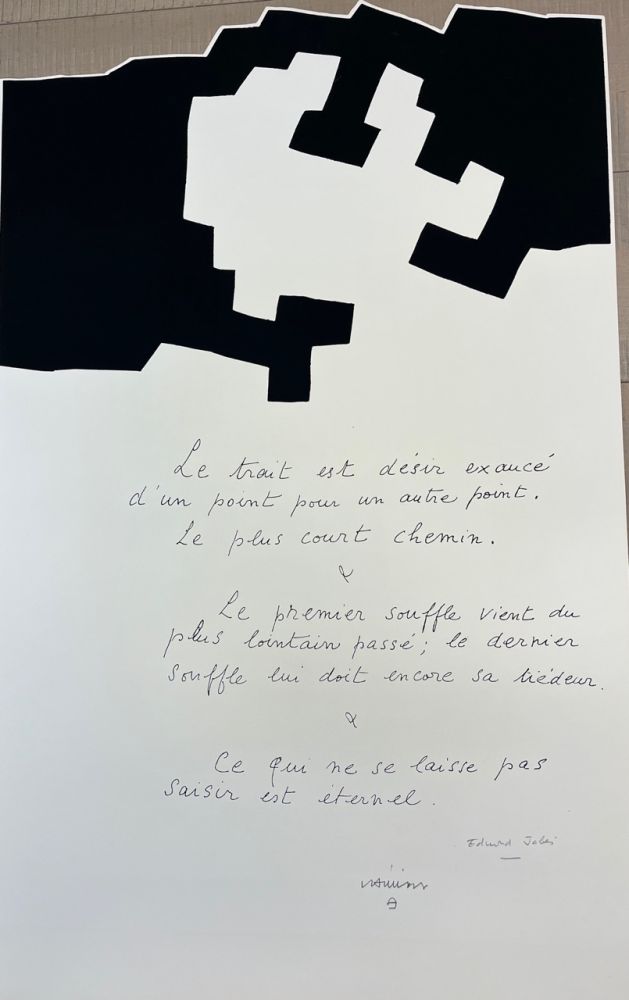 Le trait est désir exaucé
d'un point pour un autre point.
Le plus court chemin.
Le premier souffle vient du
plus lointain passé; le dernier
souffle lui doit encore sa tiédeur.
Ce qui ne se laisse pas
saisir est éternel.
Edmond Jabès